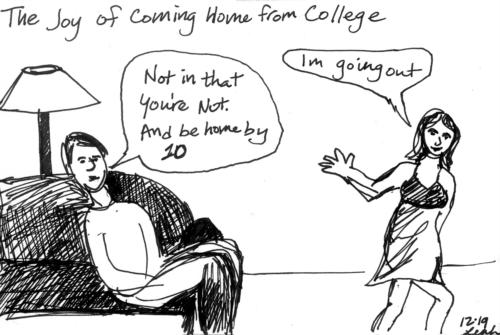 The Joy of Coming Home from College
Im going out
Not in that
You're Not.
And be home by
10
12.19